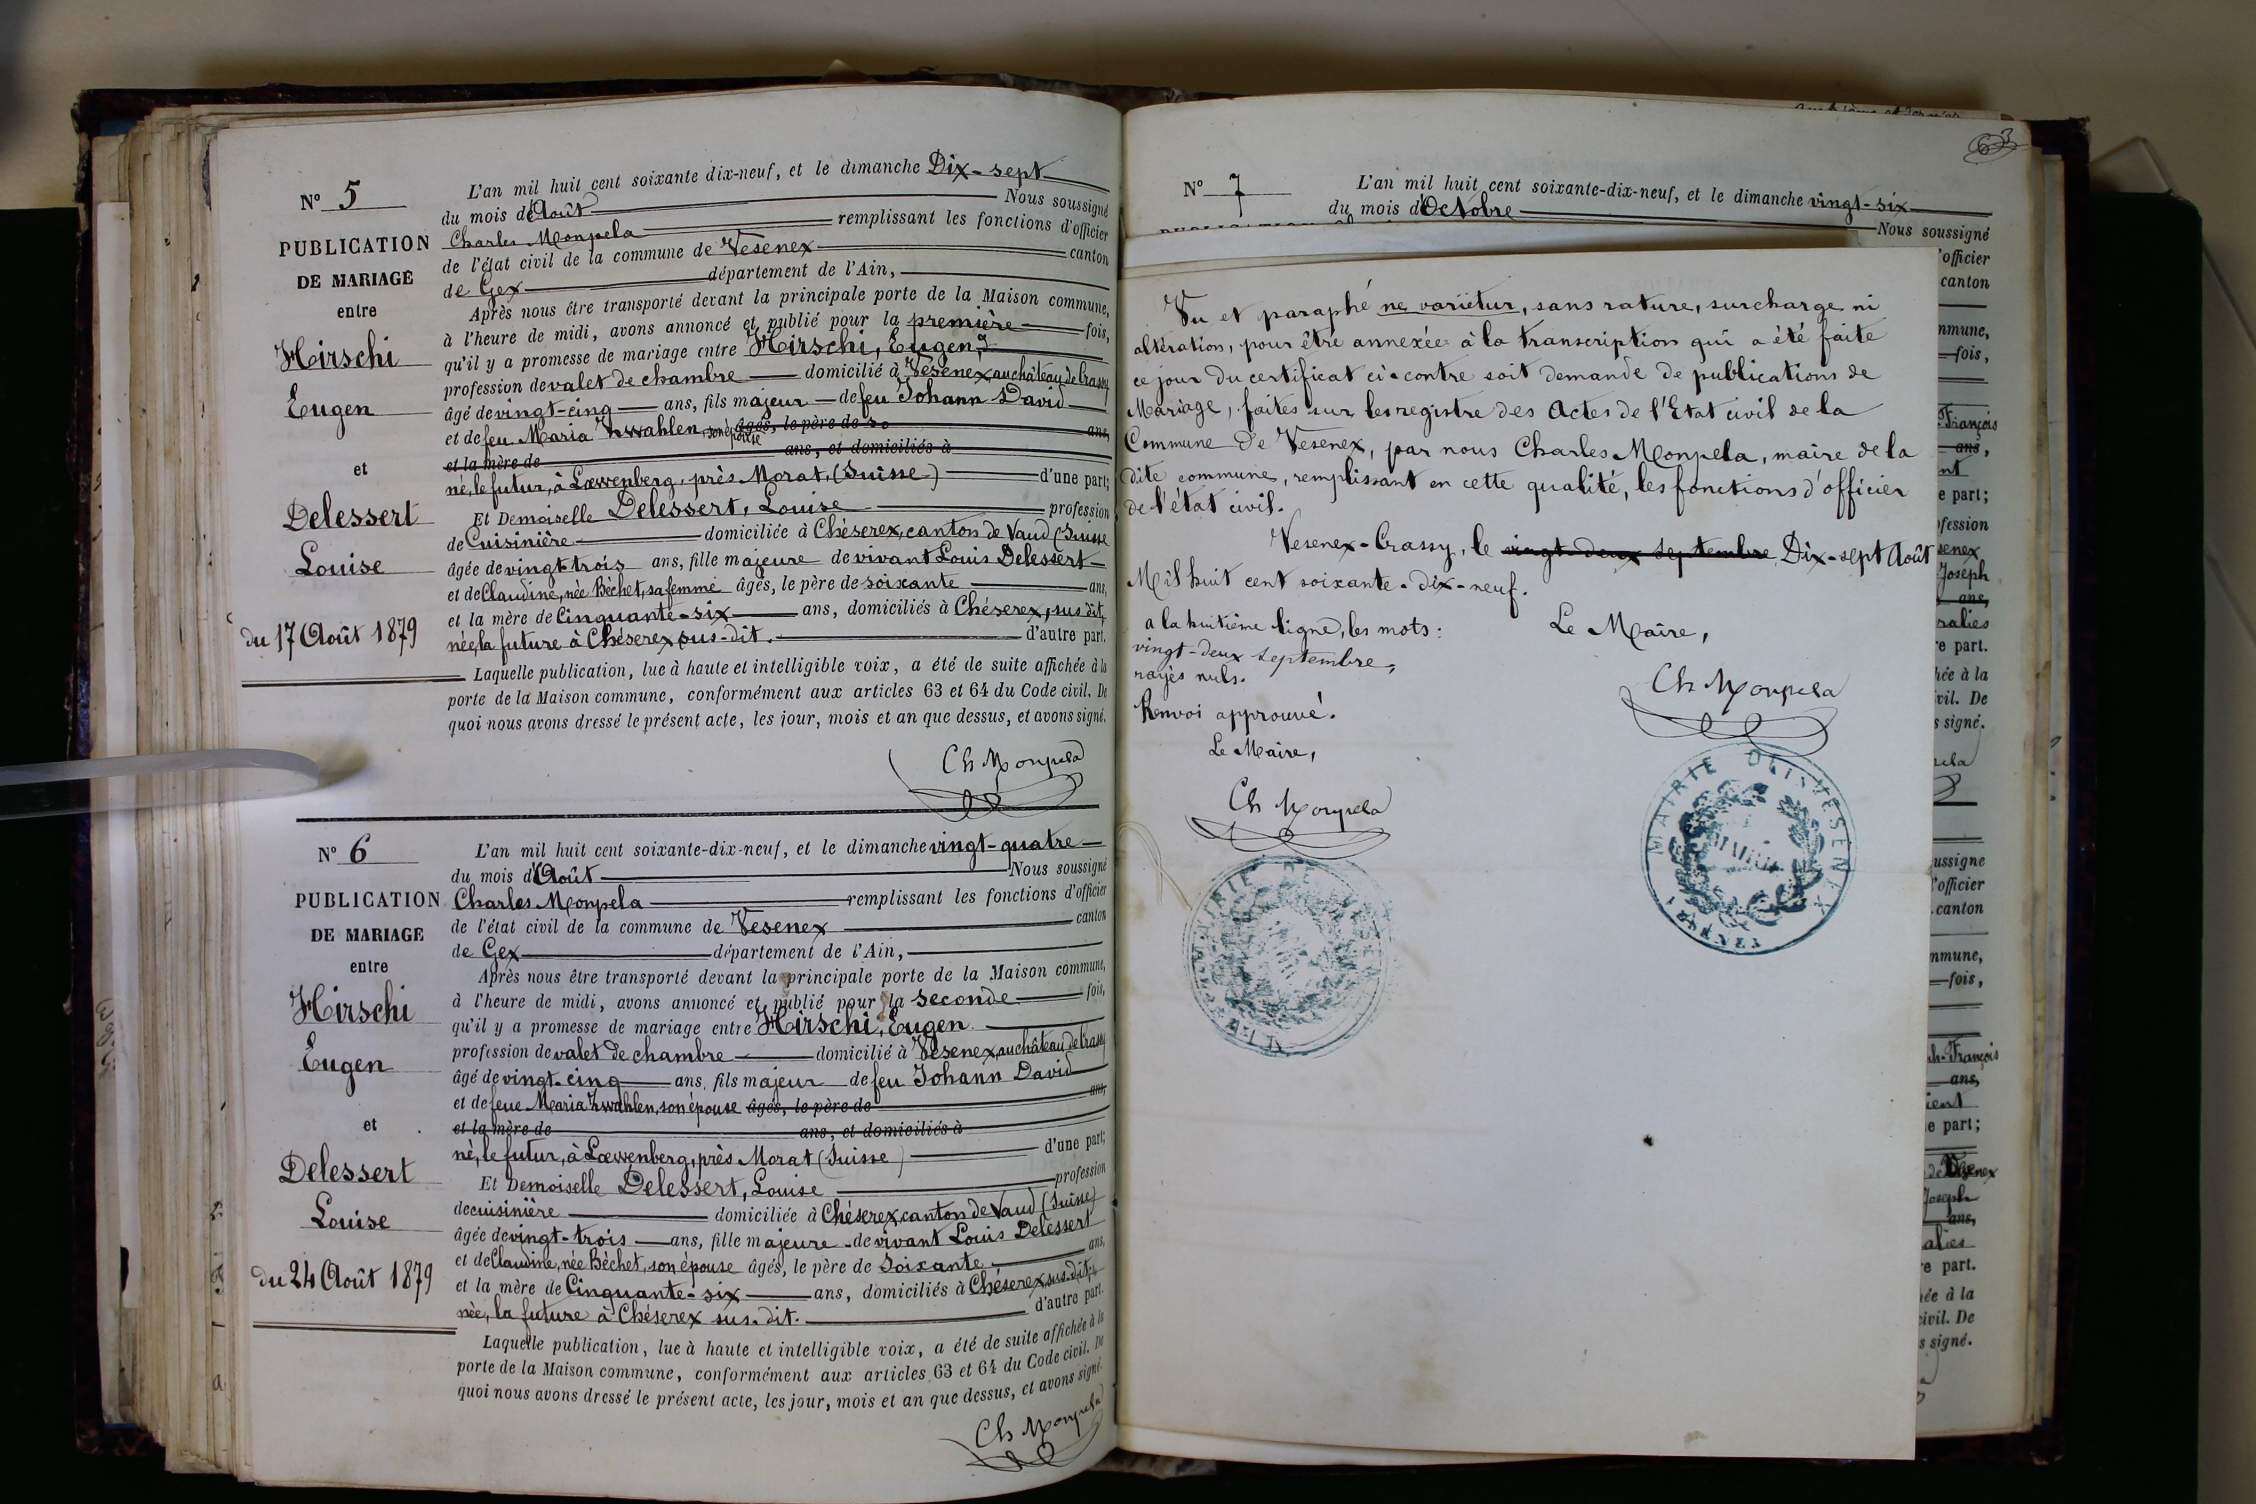 N° 5
PUBLICATION
DE MARIAGE
entre
Hirschi
Eugen
et
Delessert
Louise
du 17 Août 1879
L'an mil huit cent soixante dix-neuf, et le dimanche Dix-sept
du mois d'Août Nous soussigné
Charles Monpela remplissant les fonctions d'officier
de l'état civil de la commune de Vesenex canton
de Gex département de l'Ain,
Après nous être transporté devant la principale porte de la Maison commune,
à l'heure de midi, avons annoncé et publié pour la première fois,
qu'il y a promesse de mariage entre Hirschi, Eugen,
profession de valet de chambre domicilié à Vesenex, au château de Crassy
âgé de vingt-cinq ans, fils majeur de feu Johann David
et de feu Maria Zwahlen, son épouse âgés, le père de ans,
et la mère de ans, et domiciliés à
né, le futur, à Lœwenberg, près Morat, (Suisse) d'une part;
Et Demoiselle Delessert, Louise profession
de Cuisinière domiciliée à Chéserex, canton de Vaud (Suisse
âgée de vingt-trois ans, fille majeure de vivant Louis Delessert
et de Claudine, née Bèchet, sa femme âgés, le père de soixante ans,
et la mère de Cinquante-six ans, domiciliés à Chéserex, sus dit,
née, la future à Chéserex sus-dit. d'autre part.
Laquelle publication, lue à haute et intelligible voix, a été de suite affichée à la
porte de la Maison commune, conformément aux articles 63 et 64 du Code civil. De
quoi nous avons dressé le présent acte, les jour, mois et an que dessus, et avons signé.
Ch Monpela
N° 6
PUBLICATION
DE MARIAGE
entre
Hirschi
Eugen
et
Delessert
Louise
du 24 Août 1879
L'an mil huit cent soixante-dix-neuf, et le dimanche vingt-quatre
du mois d'Août Nous soussigné
Charles Monpela remplissant les fonctions d'officier
de l'état civil de la commune de Vesenex canton
de Gex département de l'Ain,
Après nous être transporté devant la principale porte de la Maison commune,
à l'heure de midi, avons annoncé et publié pour la seconde fois,
qu'il y a promesse de mariage entre Hirschi, Eugen
profession de valet de chambre domicilié à Vesenex, au château de Crassy
âgé de vingt-cinq ans, fils majeur de feu Johann David
et de feue Maria Zwahlen, son épouse âgés, le père de ans,
et la mère de ans, et domiciliés à
né, le futur, à Lœwenberg, près Morat (Suisse) d'une part;
Et Demoiselle Delessert, Louise profession
de cuisinière domiciliée à Chéserex, canton de Vaud (Suisse)
âgée de vingt-trois ans, fille majeure de vivant Louis Delessert
et de Claudine, née Bèchet, son épouse âgés, le père de Soixante ans,
et la mère de Cinquante-six ans, domiciliés à Chéserex, sus-dit,
née, la future à Chéserex sus-dit. d'autre part.
Laquelle publication, lue à haute et intelligible voix, a été de suite affichée à la
porte de la Maison commune, conformément aux articles 63 et 64 du Code civil. De
quoi nous avons dressé le présent acte, les jour, mois et an que dessus, et avons signé.
Ch Monpela
63
N° 7
L'an mil huit cent soixante-dix-neuf, et le dimanche vingt-six
du mois d'Octobre
Nous soussigné
Vu et paraphé ne varietur, sans rature, surcharge ni
altération, pour être annexée à la transcription qui a été faite
ce jour du certificat ci-contre soit demande de publications de
Mariage, faites sur les registre des Actes de l'Etat civil de la
Commune de Vesenex, par nous Charles Monpela, maire de la
dite commune, remplissant en cette qualité, les fonctions d'officier
de l'état civil.
Vesenex-Crassy, le vingt-deux septembre Dix-sept Août
Mil huit cent soixante-dix-neuf.
a la huitième ligne, les mots:
vingt-deux septembre,
rayés nuls.
Renvoi approuvé.
Le Maire,
Ch Monpela
Le Maire,
Ch Monpela
MAIRIE DE VESENEX
MAIRIE DE VESENEX
officier
canton
mmune,
fois,
François
ans,
e part;
ofession
senex
Joseph
ans,
ralies
e part.
hée à la
ivil. De
s signé.
ussigné
l'officier
canton
mmune,
fois,
h-François
ans,
ient
e part;
de Vesenex
Joseph
ans,
alies
e part.
hée à la
civil. De
s signé.